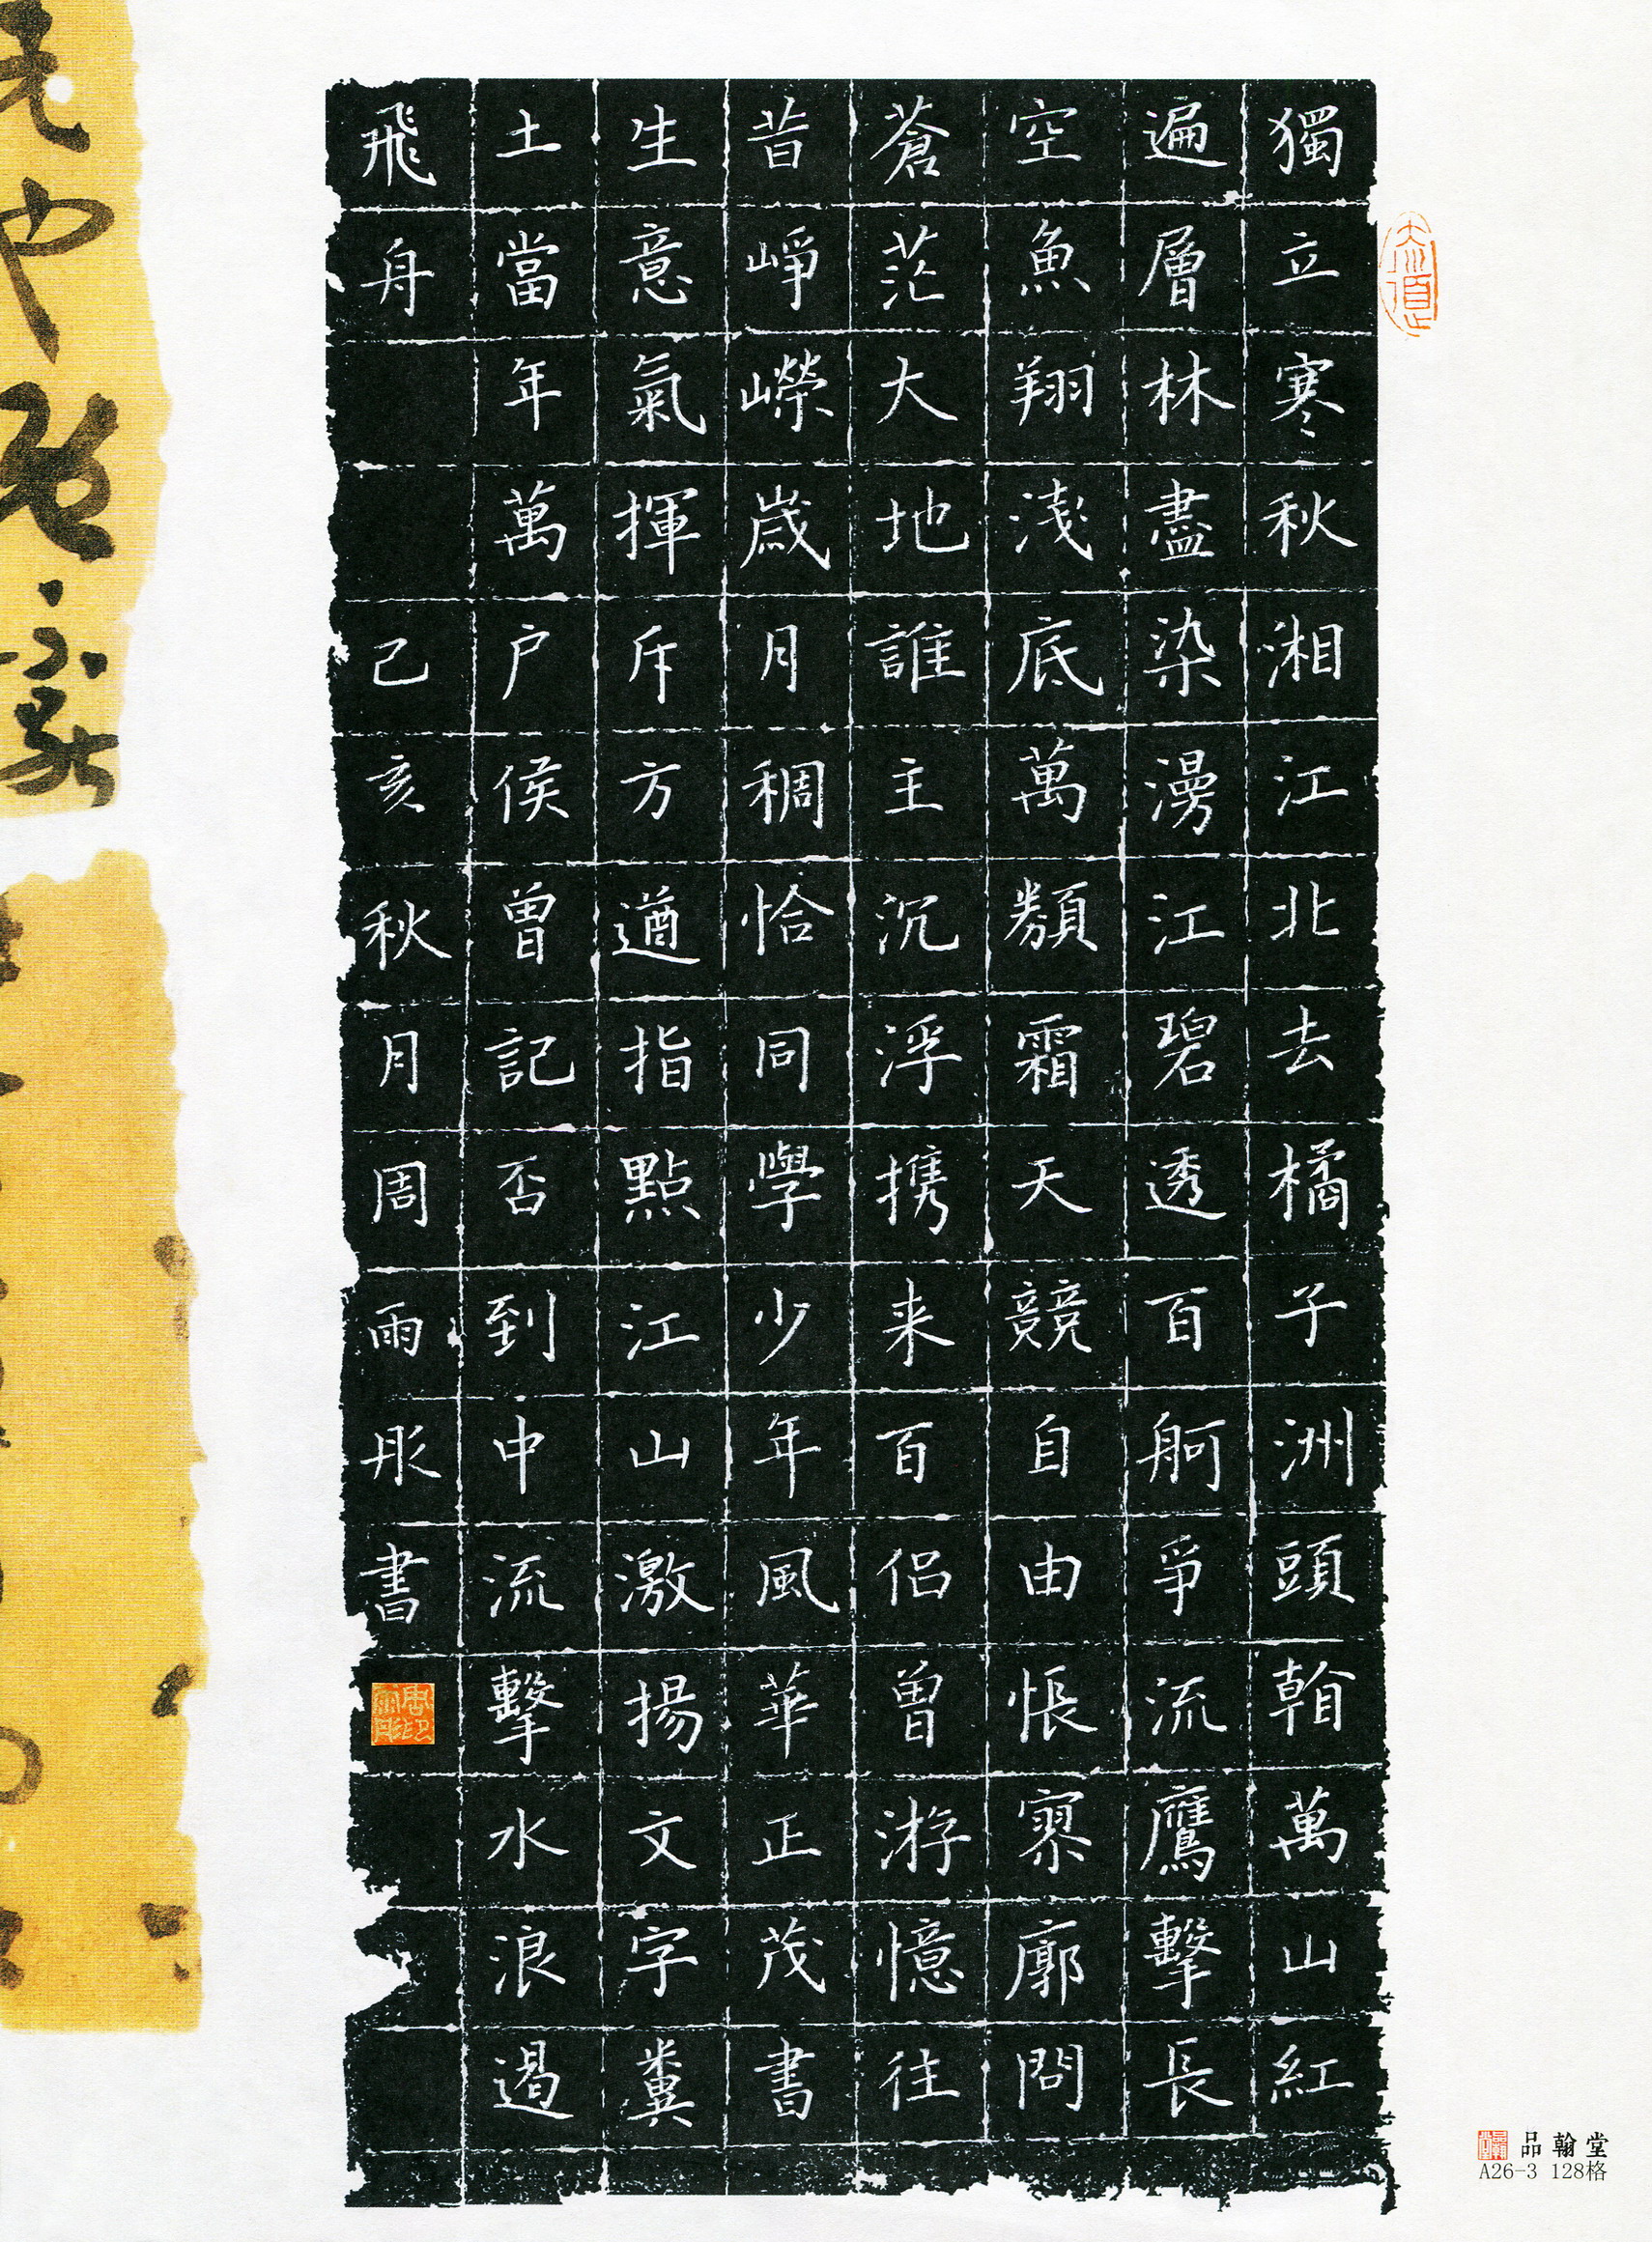 獨立寒秋湘江北去橘子洲頭看萬山紅
遍層林盡染漫江碧透百舸爭流鷹擊長
空魚翔淺底萬類霜天競自由悵寥廓問
蒼茫大地誰主沉浮携来百侣曾游憶往
昔崢嶸歲月稠恰同學少年風華正茂書
生意氣揮斥方遒指點江山激揚文字糞
土當年萬户侯曾記否到中流擊水浪遏
飛舟 己亥秋月周雨彤書
品翰堂
A26-3 128格